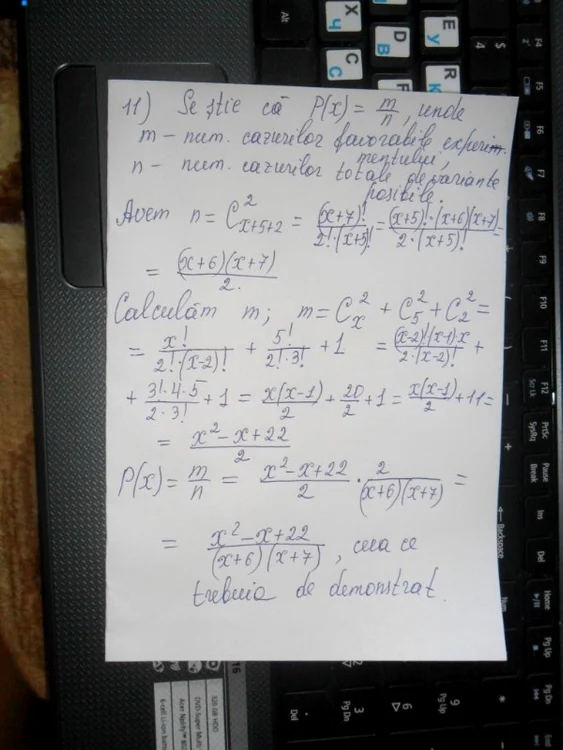 11) Se știe că P(x) = m/n, unde
m – num. cazurilor favorabile experim-
mentului,
n – num. cazurilor totale de variante
posibile.
Avem n = C²ₓ₊₅₊₂ = (x+7)!/(2!·(x+5)!) = (x+5)!·(x+6)(x+7)/(2·(x+5)!) =
= (x+6)(x+7)/2.
Calculăm m; m = C²ₓ + C²₅ + C²₂ =
= x!/(2!·(x-2)!) + 5!/(2!·3!) + 1 = (x-2)!(x-1)·x/(2·(x-2)!) +
+ 3!·4·5/(2·3!) + 1 = x(x-1)/2 + 20/2 + 1 = x(x-1)/2 + 11 =
= (x²-x+22)/2
P(x) = m/n = (x²-x+22)/2 · 2/((x+6)(x+7)) =
= (x²-x+22)/((x+6)(x+7)), ceea ce
trebuia de demonstrat.
Alt
Ч
X
C
D
В
С
E
У
R
К
$
4
F4
F5
F6
F7
F8
F9
F10
F11
F12
PrtSc
SysRq
Pause
Break
Ins
Del
Home
Pg Up
Pg Dn
End
Backspace
Num
320 GB HDD
DVD-Super Multi
6-cell Li-ion
Del
3
Pg Dn
6
9
Pg Up
*